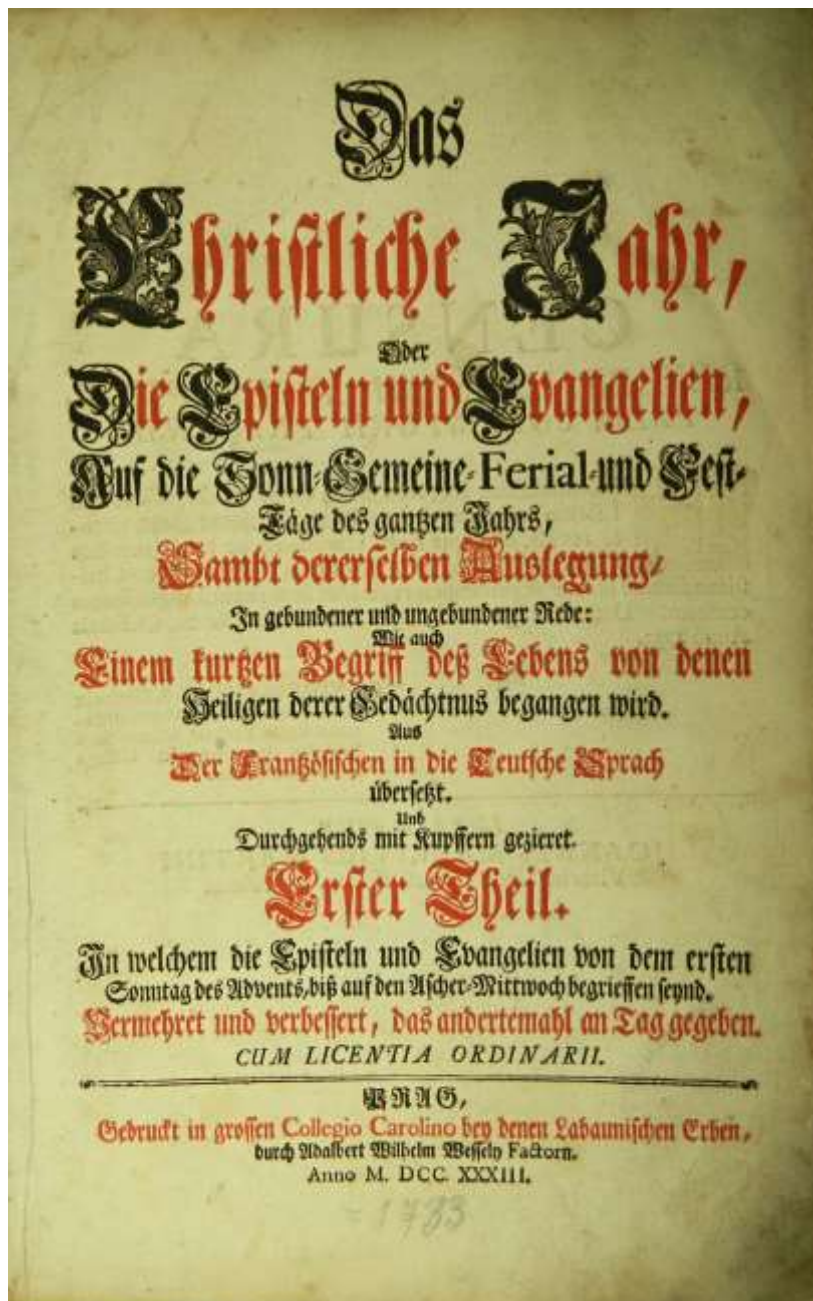 Das
Christliche Jahr,
Oder
Die Episteln und Evangelien,
Auf die Sonn-Gemeine-Ferial-und Fest-
Täge des gantzen Jahrs,
Sambt dererselben Auslegung,
In gebundener und ungebundener Rede:
Wie auch
Einem kurtzen Begriff deß Lebens von denen
Heiligen derer Gedächtnus begangen wird.
Aus
Der Frantzösischen in die Teutsche Sprach
übersetzt.
Und
Durchgehends mit Kupffern gezieret.
Erster Theil.
In welchem die Episteln und Evangelien von dem ersten
Sonntag des Advents, biß auf den Ascher-Mittwoch begrieffen seynd.
Vermehret und verbessert, das andertemahl an Tag gegeben.
CUM LICENTIA ORDINARII.
PRAG,
Gedruckt in grossen Collegio Carolino bey denen Labaunischen Erben,
durch Adalbert Wilhelm Wesseln Factorn.
Anno M. DCC. XXXIII.
= 1733